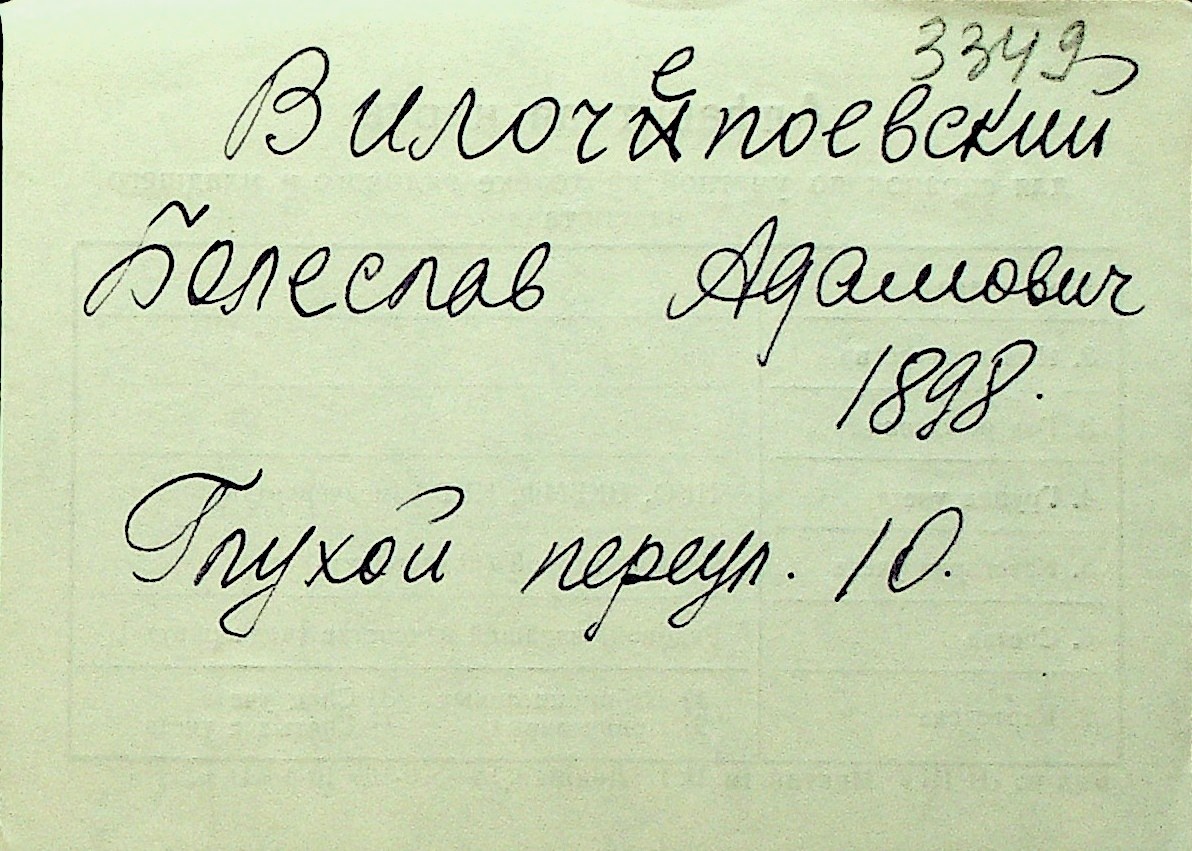 3349
Вилочепоевский
Болеслав Адамович
1898.
Глухой переул. 10.